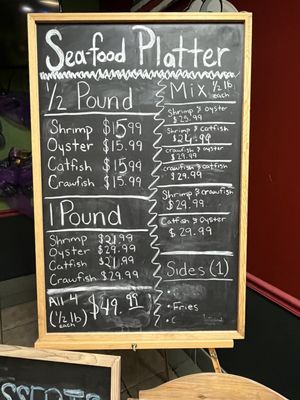 Seafood Platter
1/2 Pound
Shrimp $15.99
Oyster $15.99
Catfish $15.99
Crawfish $15.99
1 Pound
Shrimp $21.99
Oyster $29.99
Catfish $21.99
Crawfish $29.99
All 4 $49.99
(1/2 lb)
each
Mix 1/2 lb
each
Shrimp & Oyster
$25.99
Shrimp & Catfish
$24.99
Crawfish & Oyster
$29.99
Crawfish & Catfish
$29.99
Shrimp & Crawfish
$29.99
Catfish & Oyster
$29.99
Sides (1)
• Fries